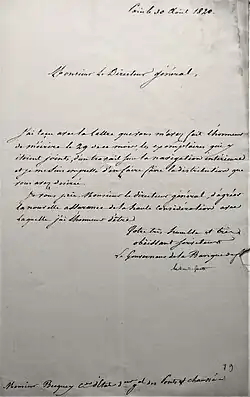 Paris le 30 Août 1820.
Monsieur Le Directeur général,
J'ai reçu avec la lettre que vous m'avez fait l'honneur
de m'écrire le 29 de ce mois les exemplaires, qui y
étoient joints, d'un travail sur la navigation intérieure
et je me suis empressé d'en faire faire la distribution que
vous avez désirée.
Je vous prie, Monsieur le directeur général, d'agréer
la nouvelle assurance de la haute considération avec
laquelle j'ai l'honneur d'être
Votre très humble et très
obéissant serviteur
Le Gouverneur de la Banque de
Monsieur Becquey Cer d'état Dteur gal des Ponts & chaussées